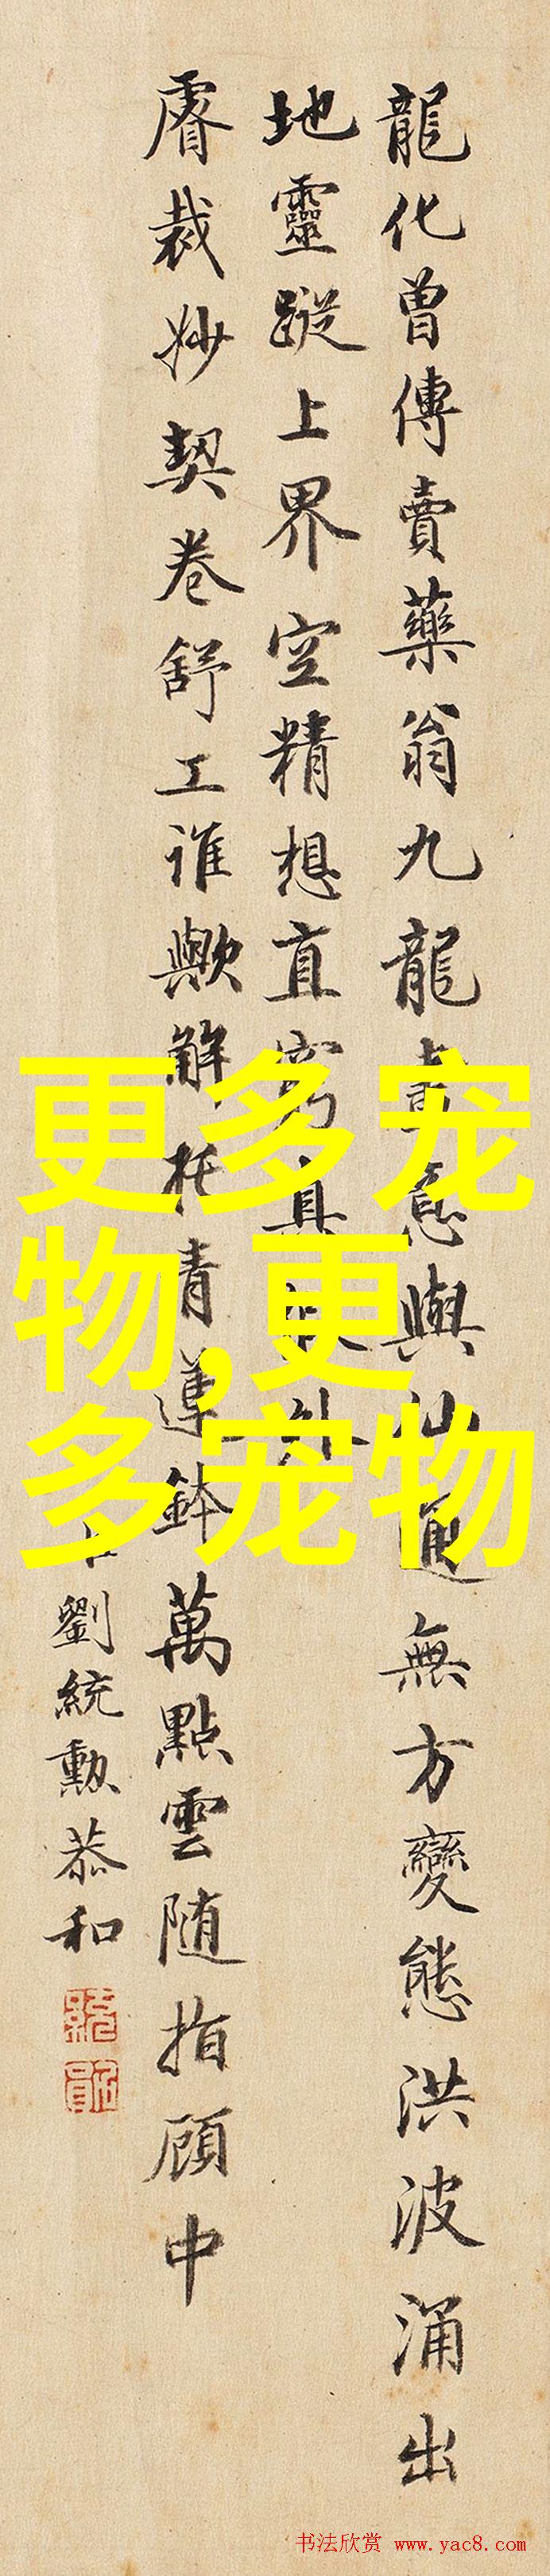 龍化曾傳賣藥翁九龍息與仙通無方變態洪波涌出
地靈蹤上界空精想直窮真外
睿裁妙契卷舒工誰歟解托青蓮鉢萬點雲随指顧中
臣劉統勳恭和
更多宠
物,更
多宠物
书法欣赏 www.yac8.com